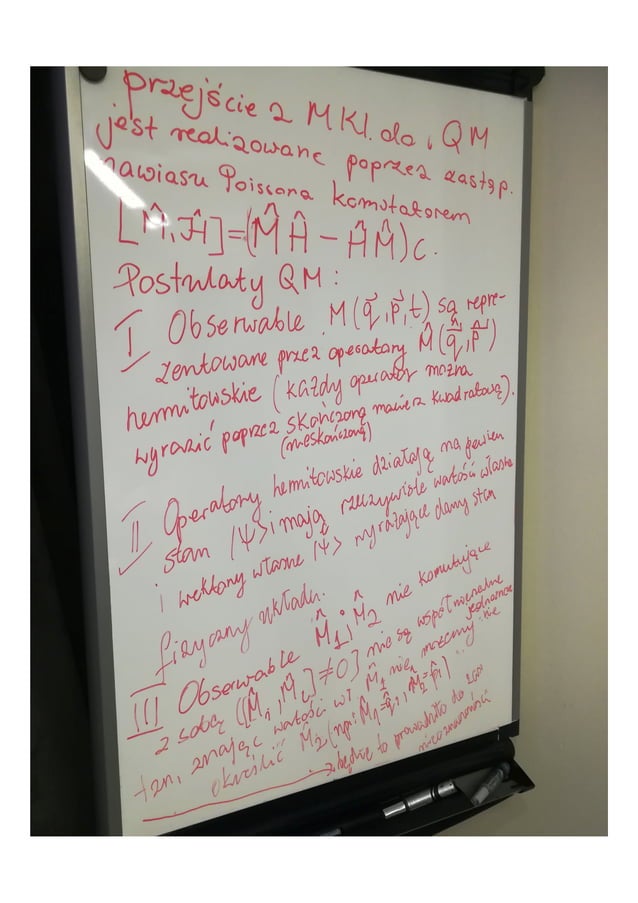 przejście z M Kl. do QM
jest realizowane poprzez zastęp.
nawiasu Poissona komutatorem
[M̂, Ĥ] = (M̂ Ĥ − Ĥ M̂) c.
Postulaty QM :
I Obserwable M(q⃗, p⃗, t) są repre-
zentowane przez operatory M̂(q̂⃗, p̂⃗)
hermitowskie (każdy operator można
wyrazić poprzez skończoną macierz kwadratową).
(nieskończoną)
II Operatory hermitowskie działają na pewien
stan |Ψ> i mają rzeczywiste watości własne
i wektory własne |Ψ> wyrażające dany stan
fizyczny układu.
III Obserwable M̂1, M̂2 nie komutujące
z sobą ([M̂1, M̂2] ≠ 0) nie są współmierzalne
tzn, znając watość wł M̂1 nie możemy jednoznacznie
określić M̂2 (np: M̂1 = q̂i, M̂2 = p̂i)
będzie to prowadziło do zas
nieoznaczoności